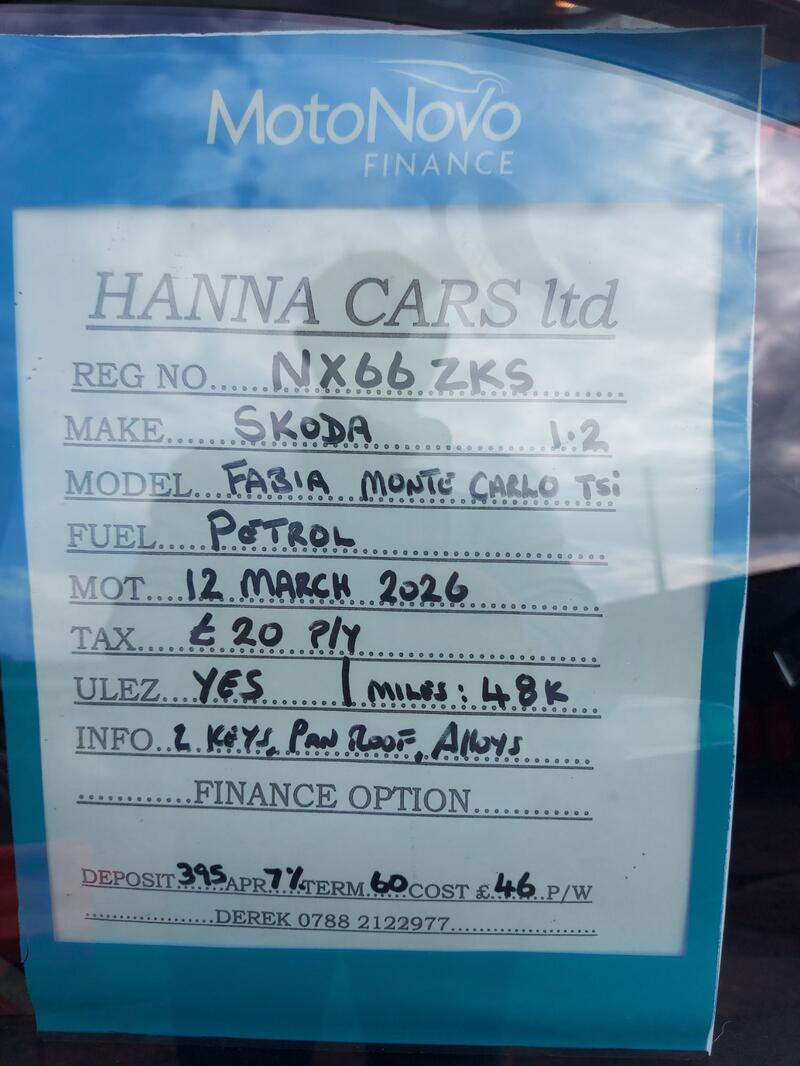 MotoNovo
FINANCE
HANNA CARS ltd
REG NO......NX66 ZKS
MAKE.....SKODA 1.2
MODEL...FABIA MONTE CARLO TSi
FUEL.....PETROL
MOT....12 MARCH 2026
TAX.....£20 P/Y
ULEZ....YES | MILES: 48K
INFO..2 KEYS, PAN ROOF, Alloys
............FINANCE OPTION............
DEPOSIT 395 APR 7% TERM 60 COST £ 46 P/W
................DEREK 0788 2122977..................